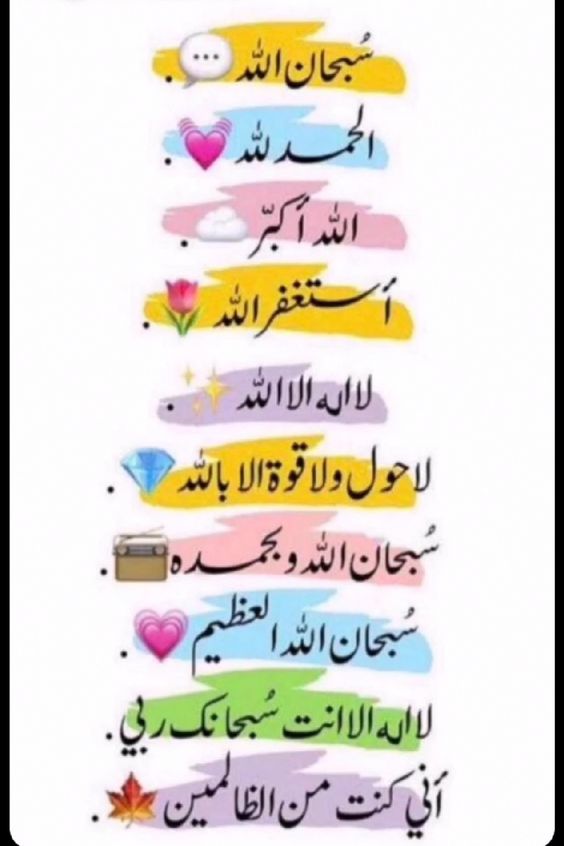 سُبحان الله 💬.
الحمد لله 💓.
الله أكبّر ☁️.
أستغفر الله 🌷.
لا اله الا الله ✨.
لا حول ولا قوة الا بالله 💎.
سُبحان الله و بحمده 📻.
سُبحان الله العظيم 💗.
لا اله الا انت سُبحانك ربي.
أني كنت من الظالمين 🍁.